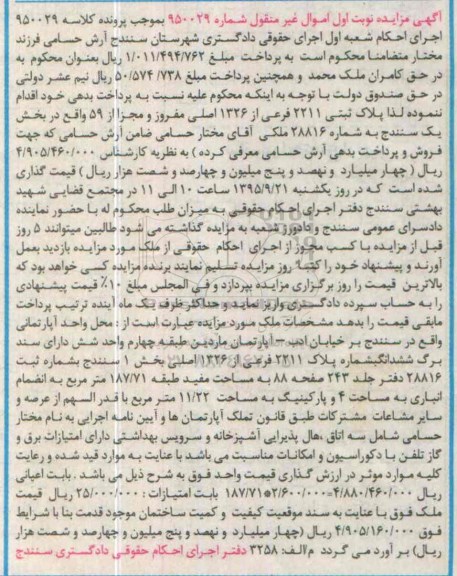 آگهی مزایده نوبت اول اموال غیر منقول شماره ۹۵۰۰۲۹ بموجب پرونده کلاسه ۹۵۰۰۲۹
اجرای احکام شعبه اول اجرای حقوقی دادگستری شهرستان سنندج آرش حسامی فرزند
مختار متضامنا محکوم است به پرداخت مبلغ ۱/۰۱۱/۴۹۴/۷۶۲ ریال بعنوان محکوم به
در حق کامران ملک محمد و همچنین پرداخت مبلغ ۵۰/۵۷۴/۷۳۸ ریال نیم عشر دولتی
در حق صندوق دولت با توجه به اینکه محکوم علیه نسبت به پرداخت بدهی خود اقدام
ننموده لذا پلاک ثبتی ۲۲۱۱ فرعی از ۱۳۲۶ اصلی مفروز و مجزا از ۵۹ واقع در بخش
یک سنندج به شماره ۲۸۸۱۶ ملکی آقای مختار حسامی ضامن آرش حسامی که جهت
فروش و پرداخت بدهی آرش حسامی معرفی کرده ) به نظریه کارشناس ۴/۹۰۵/۴۶۰/۰۰۰
ریال ( چهار میلیارد و نهصد و پنج میلیون و چهارصد و شصت هزار ریال ) قیمت گذاری
شده است که در روز یکشنبه ۱۳۹۵/۹/۲۱ ساعت ۱۰ الی ۱۱ در مجتمع قضایی شهید
بهشتی سنندج دفتر اجرای احکام حقوقی به میزان طلب محکوم له با حضور نماینده
دادسرای عمومی سنندج و دادورز شعبه به مزایده گذاشته می شود طالبین میتوانند ۵ روز
قبل از مزایده با کسب مجوز از اجرای احکام حقوقی از ملک مورد مزایده بازدید بعمل
آورند و پیشنهاد خود را کتبا روز مزایده تسلیم نمایند برنده مزایده کسی خواهد بود که
بالاترین قیمت را روز برگزاری مزایده بپردازد و فی المجلس مبلغ ۱۰٪ قیمت پیشنهادی
را به حساب سپرده دادگستری واریز نماید و حداکثر ظرف یک ماه آینده ترتیب پرداخت
مابقی قیمت را بدهد مشخصات ملک مورد مزایده عبارت است از : محل واحد آپارتمانی
واقع در سنندج بر خیابان ادب – آپارتمان ماردین طبقه چهارم واحد شش دارای سند
برگ ششدانگ بشماره پلاک ۲۲۱۱ فرعی از ۱۳۲۶ اصلی بخش ۱ سنندج بشماره ثبت
۲۸۸۱۶ دفتر جلد ۲۴۳ صفحه ۸۸ به مساحت مفید طبقه ۱۸۷/۷۱ متر مربع به انضمام
انباری به مساحت ۴ و پارکینگ به مساحت ۱۱/۲۲ متر مربع با قدر السهم از عرصه و
سایر مشاعات مشترکات طبق قانون تملک آپارتمان ها و آیین نامه اجرایی به نام مختار
حسامی شامل سه اتاق ،هال پذیرایی آشپزخانه و سرویس بهداشتی دارای امتیازات برق و
گاز تلفن با دکوراسیون و امکانات مناسبت می باشد با عنایت به موارد قید شده و رعایت
کلیه موارد موثر در ارزش گذاری قیمت واحد فوق به شرح ذیل می باشد . بابت اعیانی
ریال ۴/۸۸۰/۴۶۰/۰۰۰=۲/۶۰۰/۰۰۰*۱۸۷/۷۱ بابت امتیازات : ۲۵/۰۰۰/۰۰۰ ریال قیمت
ملک فوق با عنایت به سند موقعیت کیفیت و کمیت ساختمان موجود قدمت بنا با شرایط
فوق ۴/۹۰۵/۱۶۰/۰۰۰ ریال (چهار میلیارد و نهصد و پنج میلیون و چهارصد و شصت هزار
ریال) بر آورد می گردد م/الف: ۳۲۵۸ دفتر اجرای احکام حقوقی دادگستری سنندج